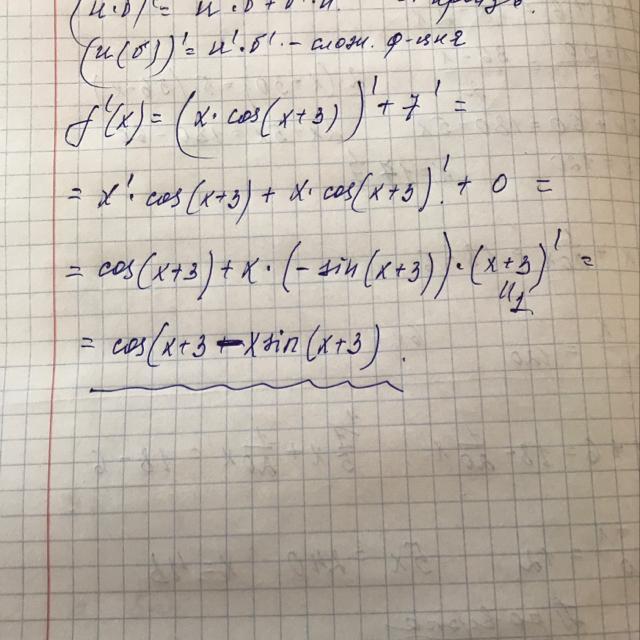 (u·v)' = u'·v + v'·u
(u(v))' = u'·v' - слож. ф-ция
f'(x) = (x·cos(x+3))' + 7' =
= x'·cos(x+3) + x·cos(x+3)' + 0 =
= cos(x+3) + x·(-sin(x+3))·(x+3)' =
"1
= cos(x+3 - x sin(x+3).